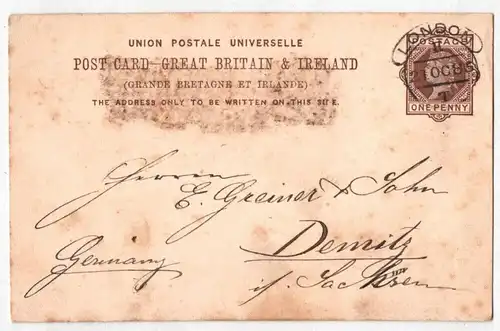 UNION POSTALE UNIVERSELLE
POST CARD - GREAT BRITAIN & IRELAND
(GRANDE BRETAGNE ET IRLANDE)
THE ADDRESS ONLY TO BE WRITTEN ON THIS SIDE.
LONDON
POSTAGE
OC 8
ONE PENNY
Herren
E. Greiner & Sohn
Demitz
Germany
i/. Sachsen